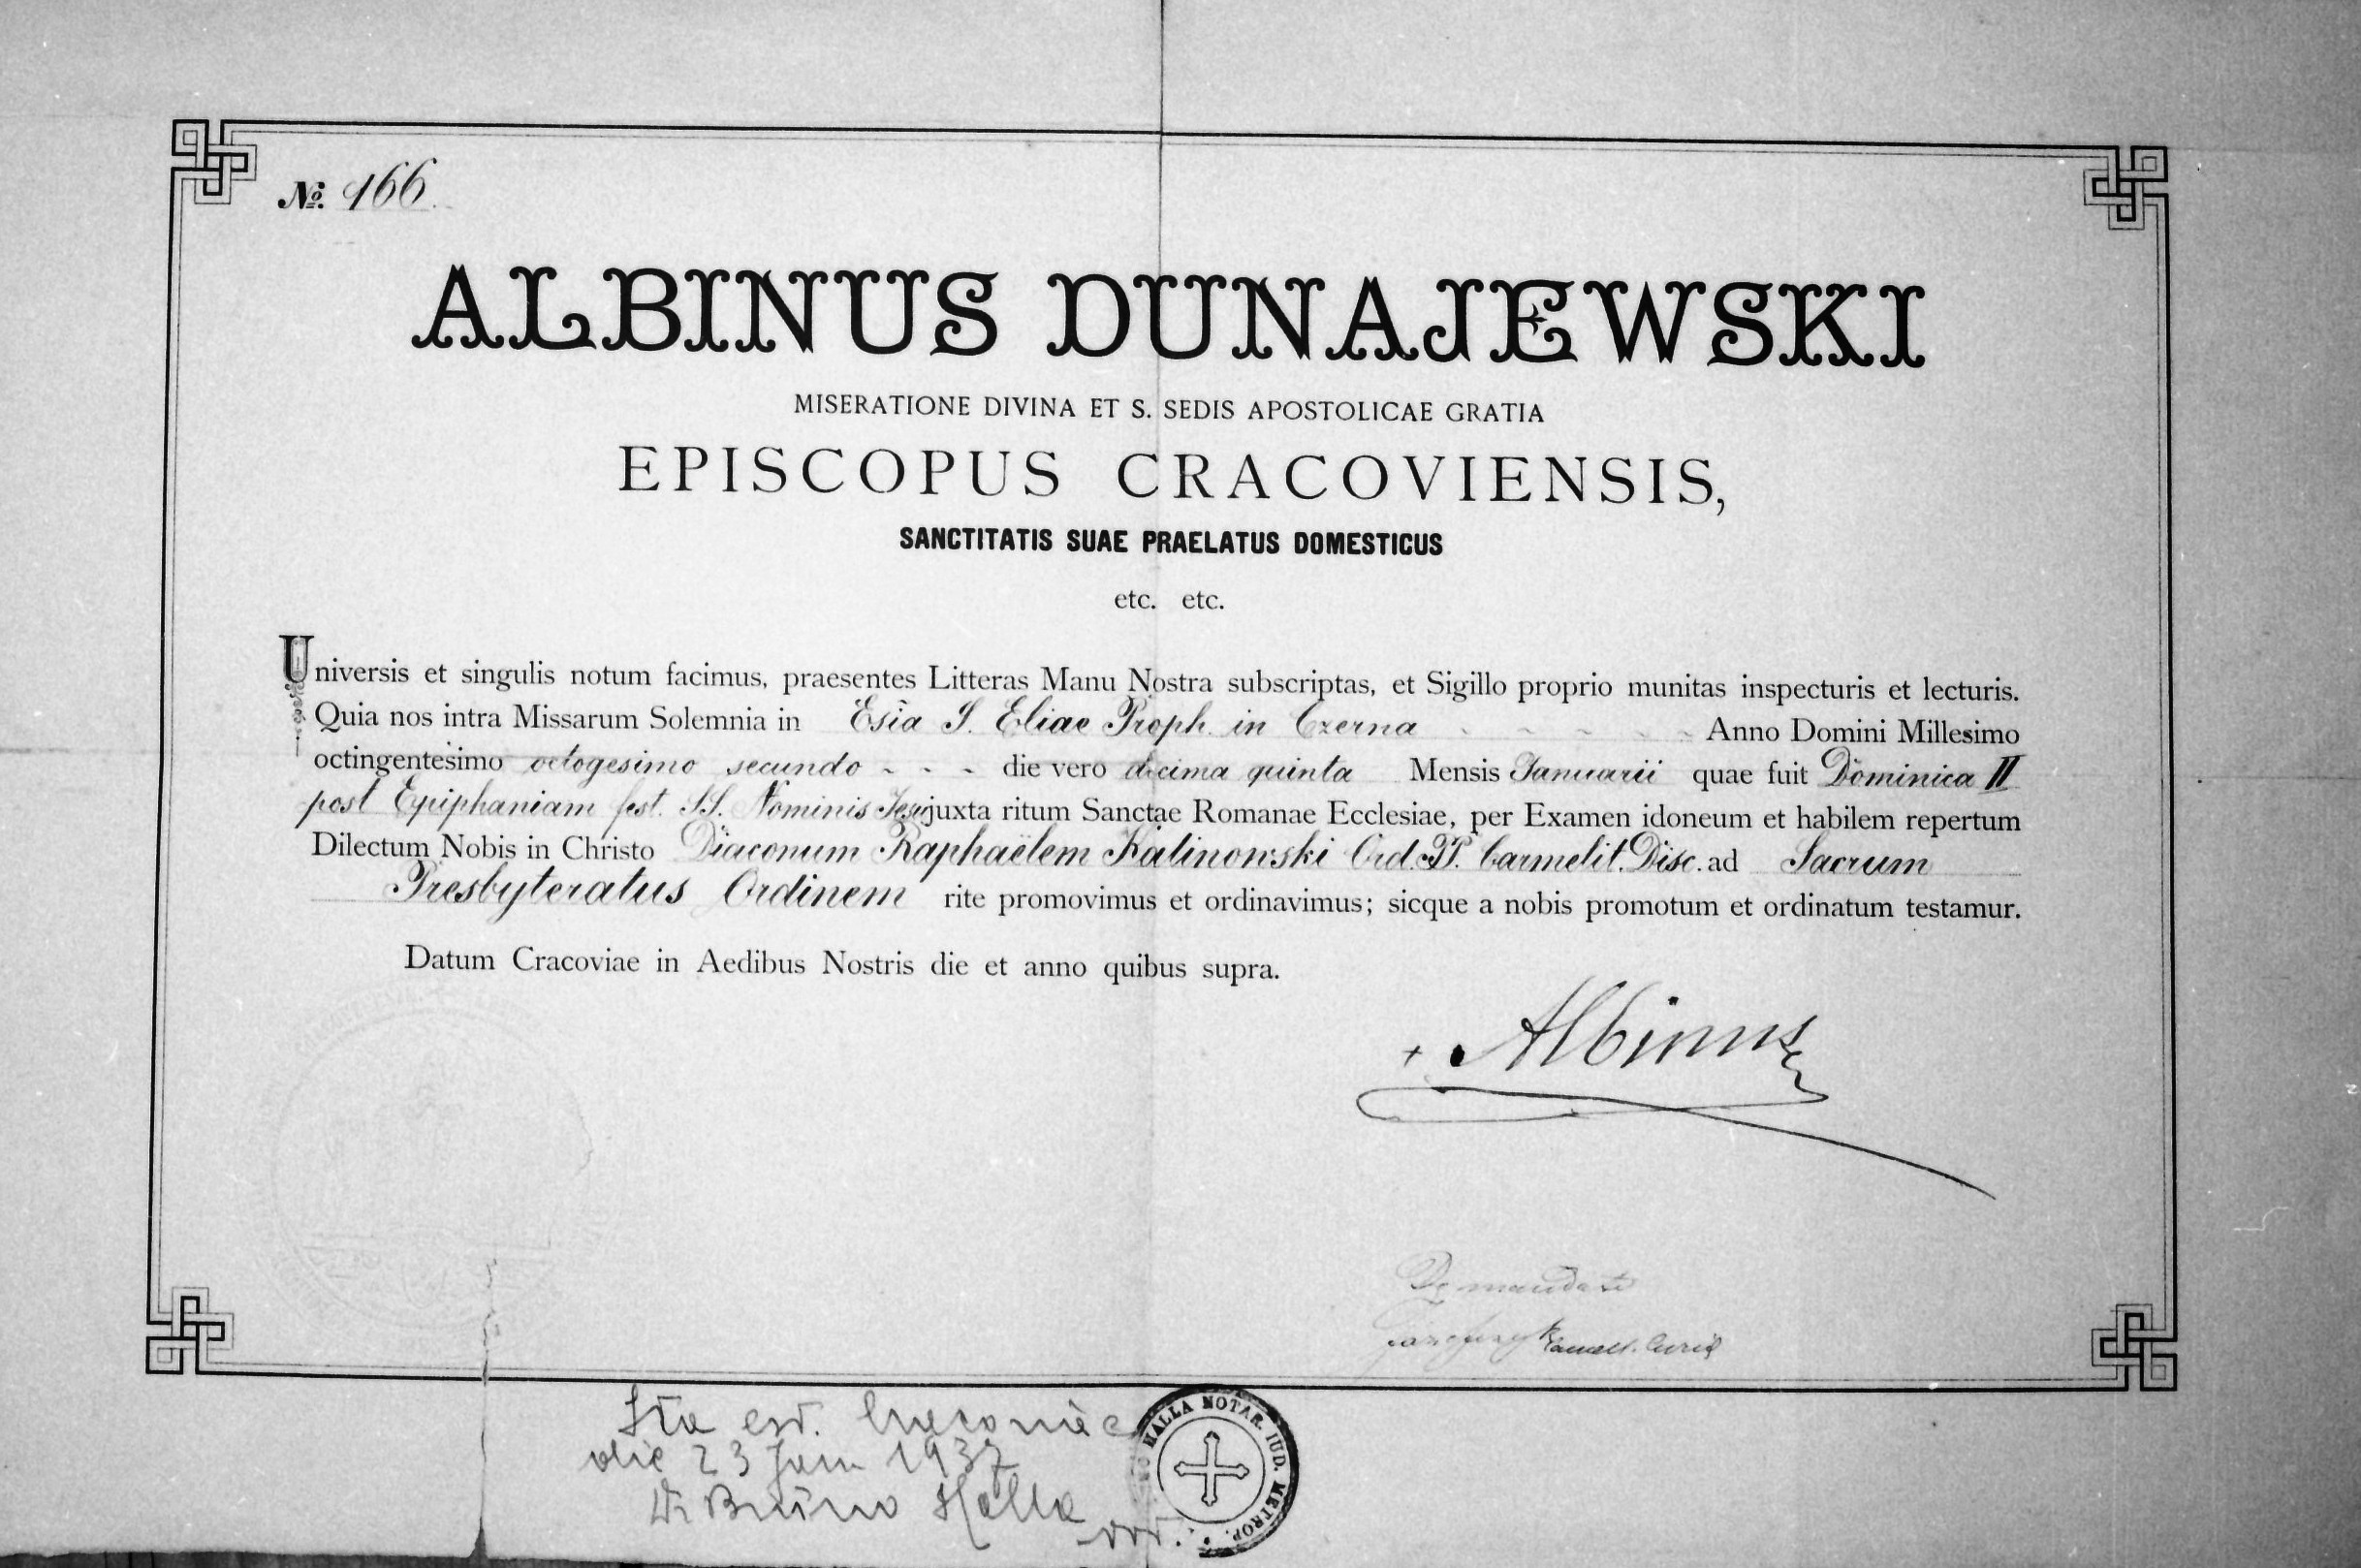 №. 166.
ALBINUS DUNAJEWSKI
MISERATIONE DIVINA ET S. SEDIS APOSTOLICAE GRATIA
EPISCOPUS CRACOVIENSIS,
SANCTITATIS SUAE PRAELATUS DOMESTICUS
etc. etc.
Universis et singulis notum facimus, praesentes Litteras Manu Nostra subscriptas, et Sigillo proprio munitas inspecturis et lecturis.
Quia nos intra Missarum Solemnia in Esia S. Eliae Proph. in Czerna - - - - - Anno Domini Millesimo
octingentesimo octogesimo secundo - - - die vero decima quinta Mensis Januarii quae fuit Dominica II
post Epiphaniam fest. SS. Nominis Jesu juxta ritum Sanctae Romanae Ecclesiae, per Examen idoneum et habilem repertum
Dilectum Nobis in Christo Diaconum Raphaëlem Kalinowski Ord. PP. Carmelit. Disc. ad Sacrum
Presbyteratus Ordinem rite promovimus et ordinavimus; sicque a nobis promotum et ordinatum testamur.
Datum Cracoviae in Aedibus Nostris die et anno quibus supra.
+ Albinus
De mandato
Curiæ
Ita est. Cracoviae
die 23 Jan 1937
Dr Bruno Halla
not.
HALLA NOTAR. IUD. METROP.